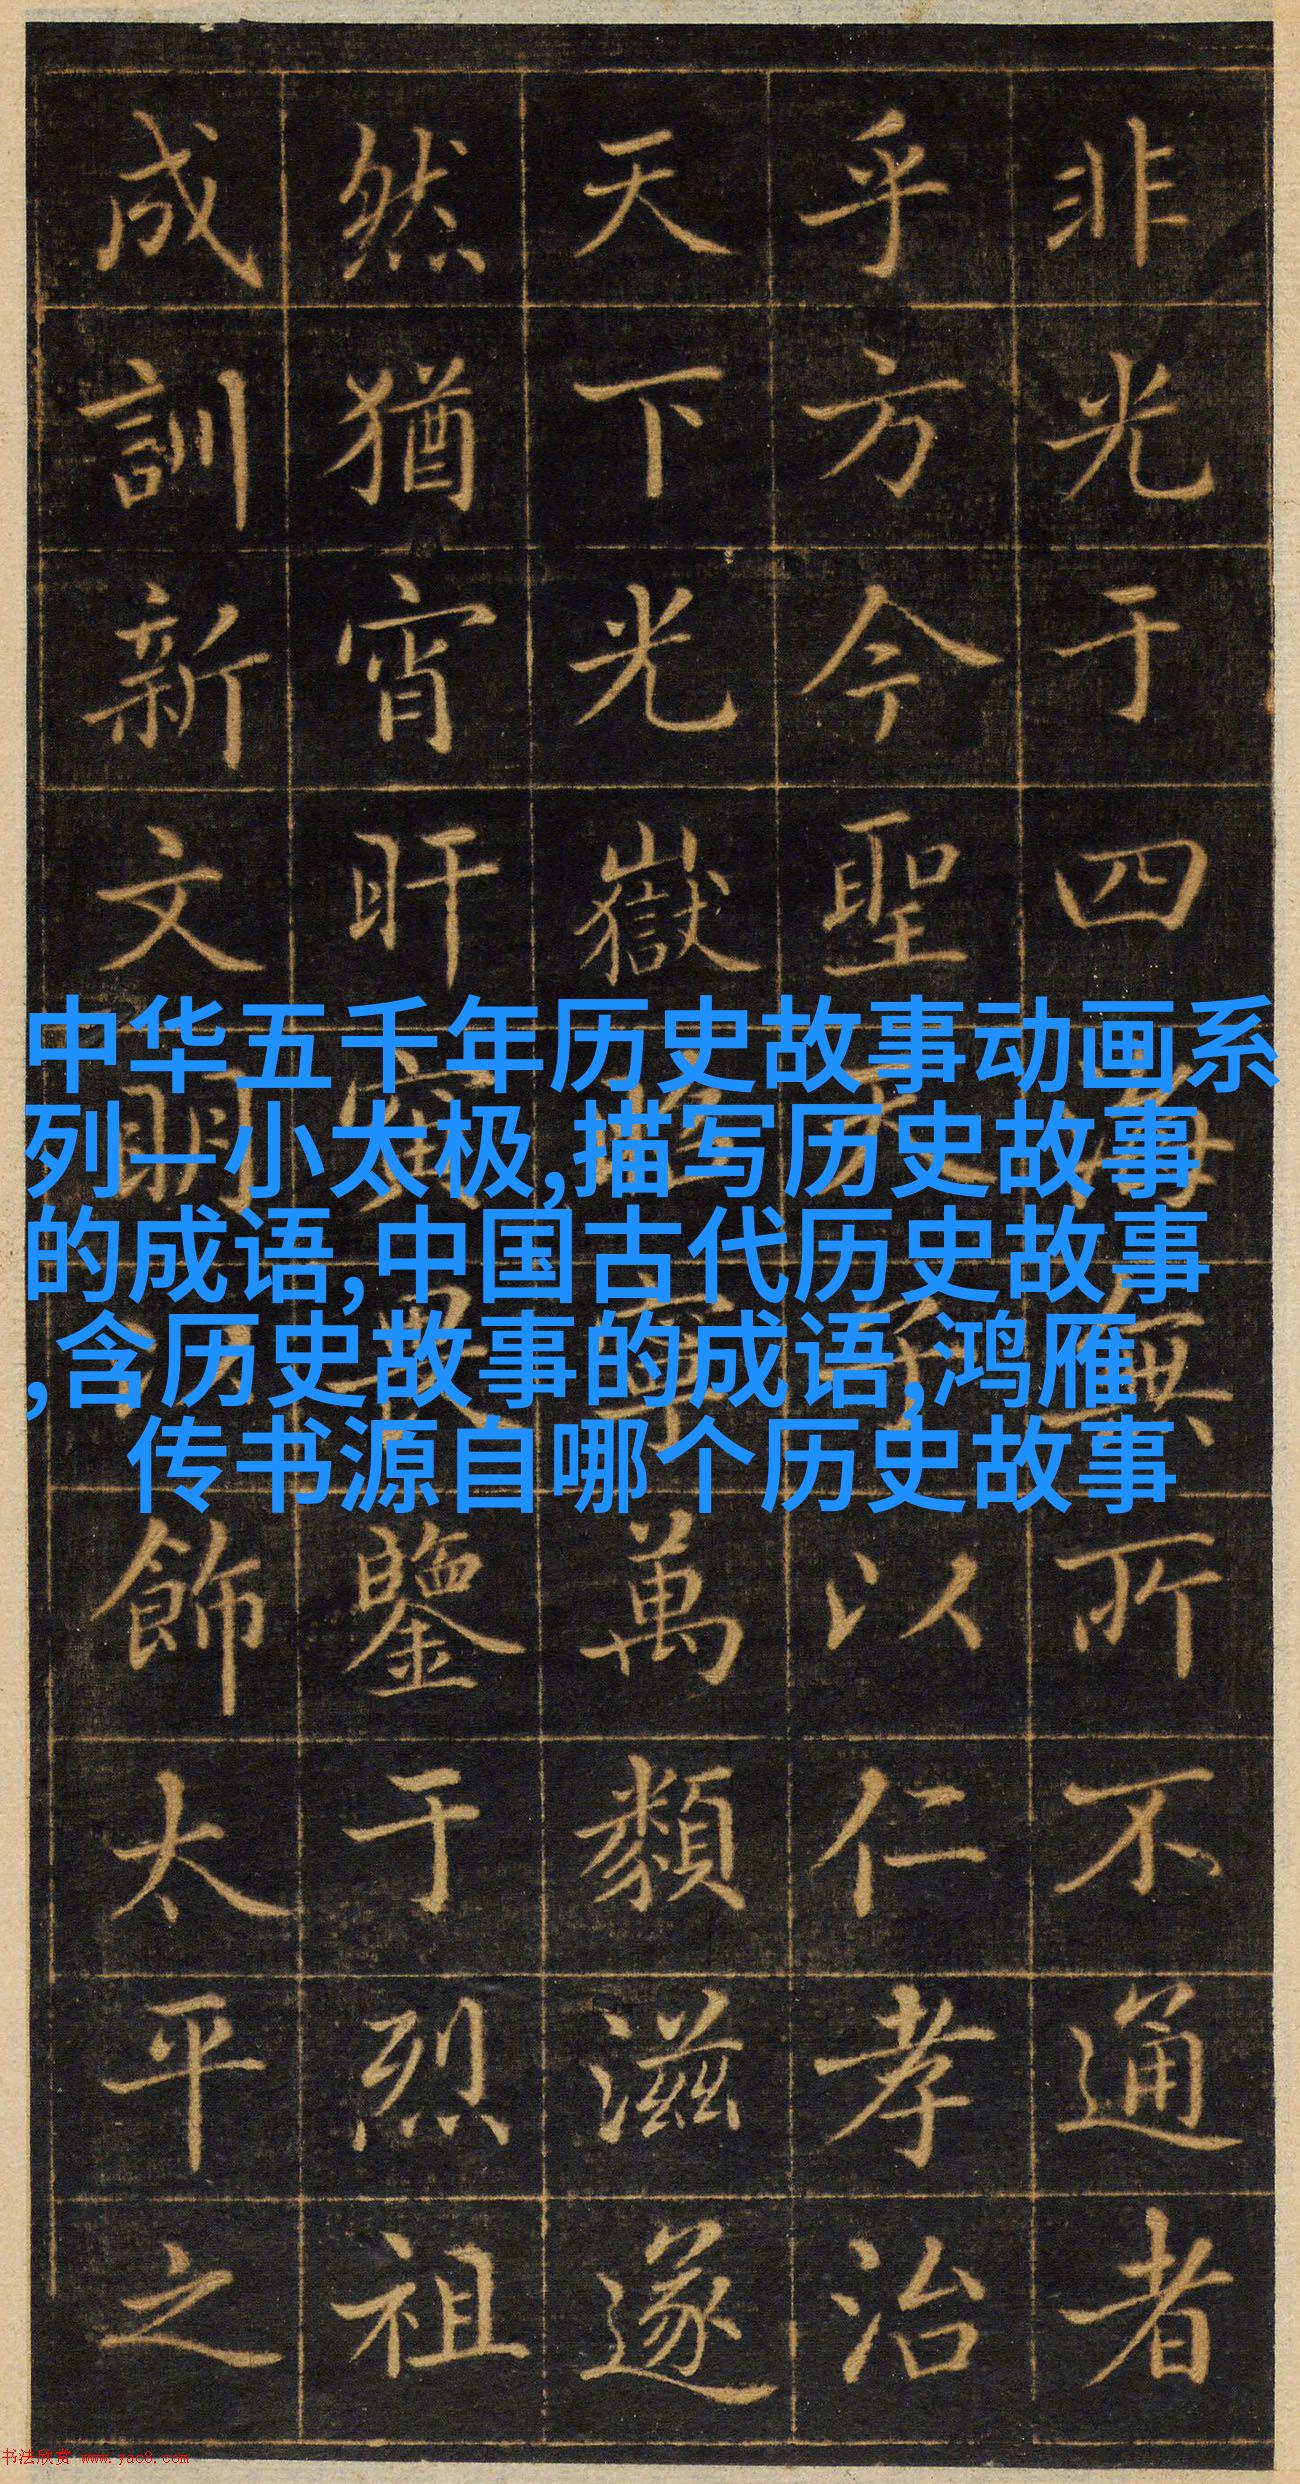 非光于四海無所不通者
乎方今聖天子以仁孝治
天下光嶽寧萬類滋遂
然猶宵旰寅畏鑒于烈祖
成訓新文明飾太平之
中华五千年历史故事动画系
列—小太极,描写历史故事
的成语,中国古代历史故事
,含历史故事的成语,鸿雁
传书源自哪个历史故事
书法欣赏 www.yac8.com